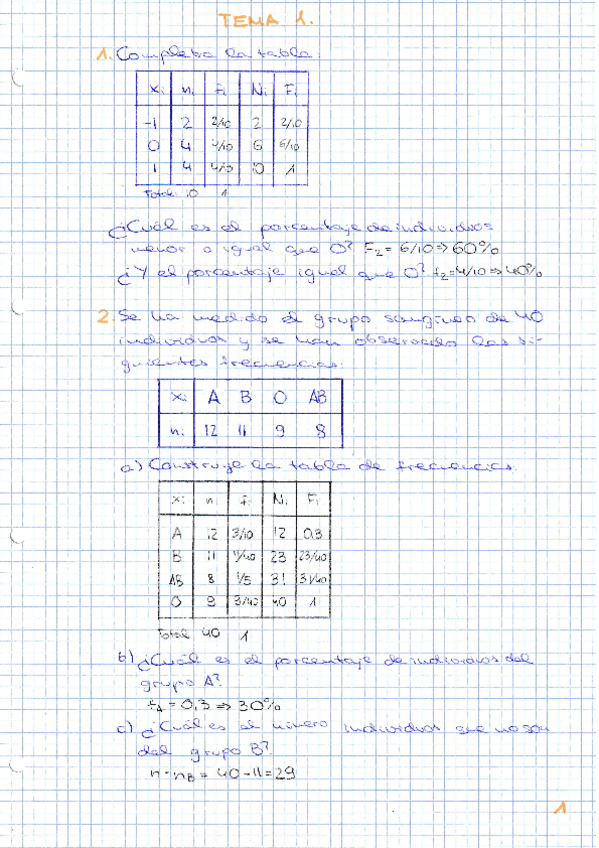 TEMA 1.
1. Completa la tabla:
xi ni fi Ni Fi
-1 2 2/10 2 2/10
0 4 4/10 6 6/10
1 4 4/10 10 1
Total: 10 1
¿Cuál es el porcentaje de individuos
menor o igual que 0? F2 = 6/10 ⇒ 60%
¿Y el porcentaje igual que 0? f2 = 4/10 ⇒ 40%
2. Se ha medido el grupo sanguíneo de 40
individuos y se han observado las si-
guientes frecuencias:
xi A B O AB
ni 12 11 9 8
a) Construye la tabla de frecuencias.
xi n fi Ni Fi
A 12 3/10 12 0,3
B 11 11/40 23 23/40
AB 8 1/5 31 31/40
O 9 40 1
Total 40 1
b) ¿Cuál es el porcentaje de individuos del
grupo A?
fA = 0,3 ⇒ 30%
c) ¿Cuál es el número individuos que no son
del grupo B?
n - nB = 40 - 11 = 29
1